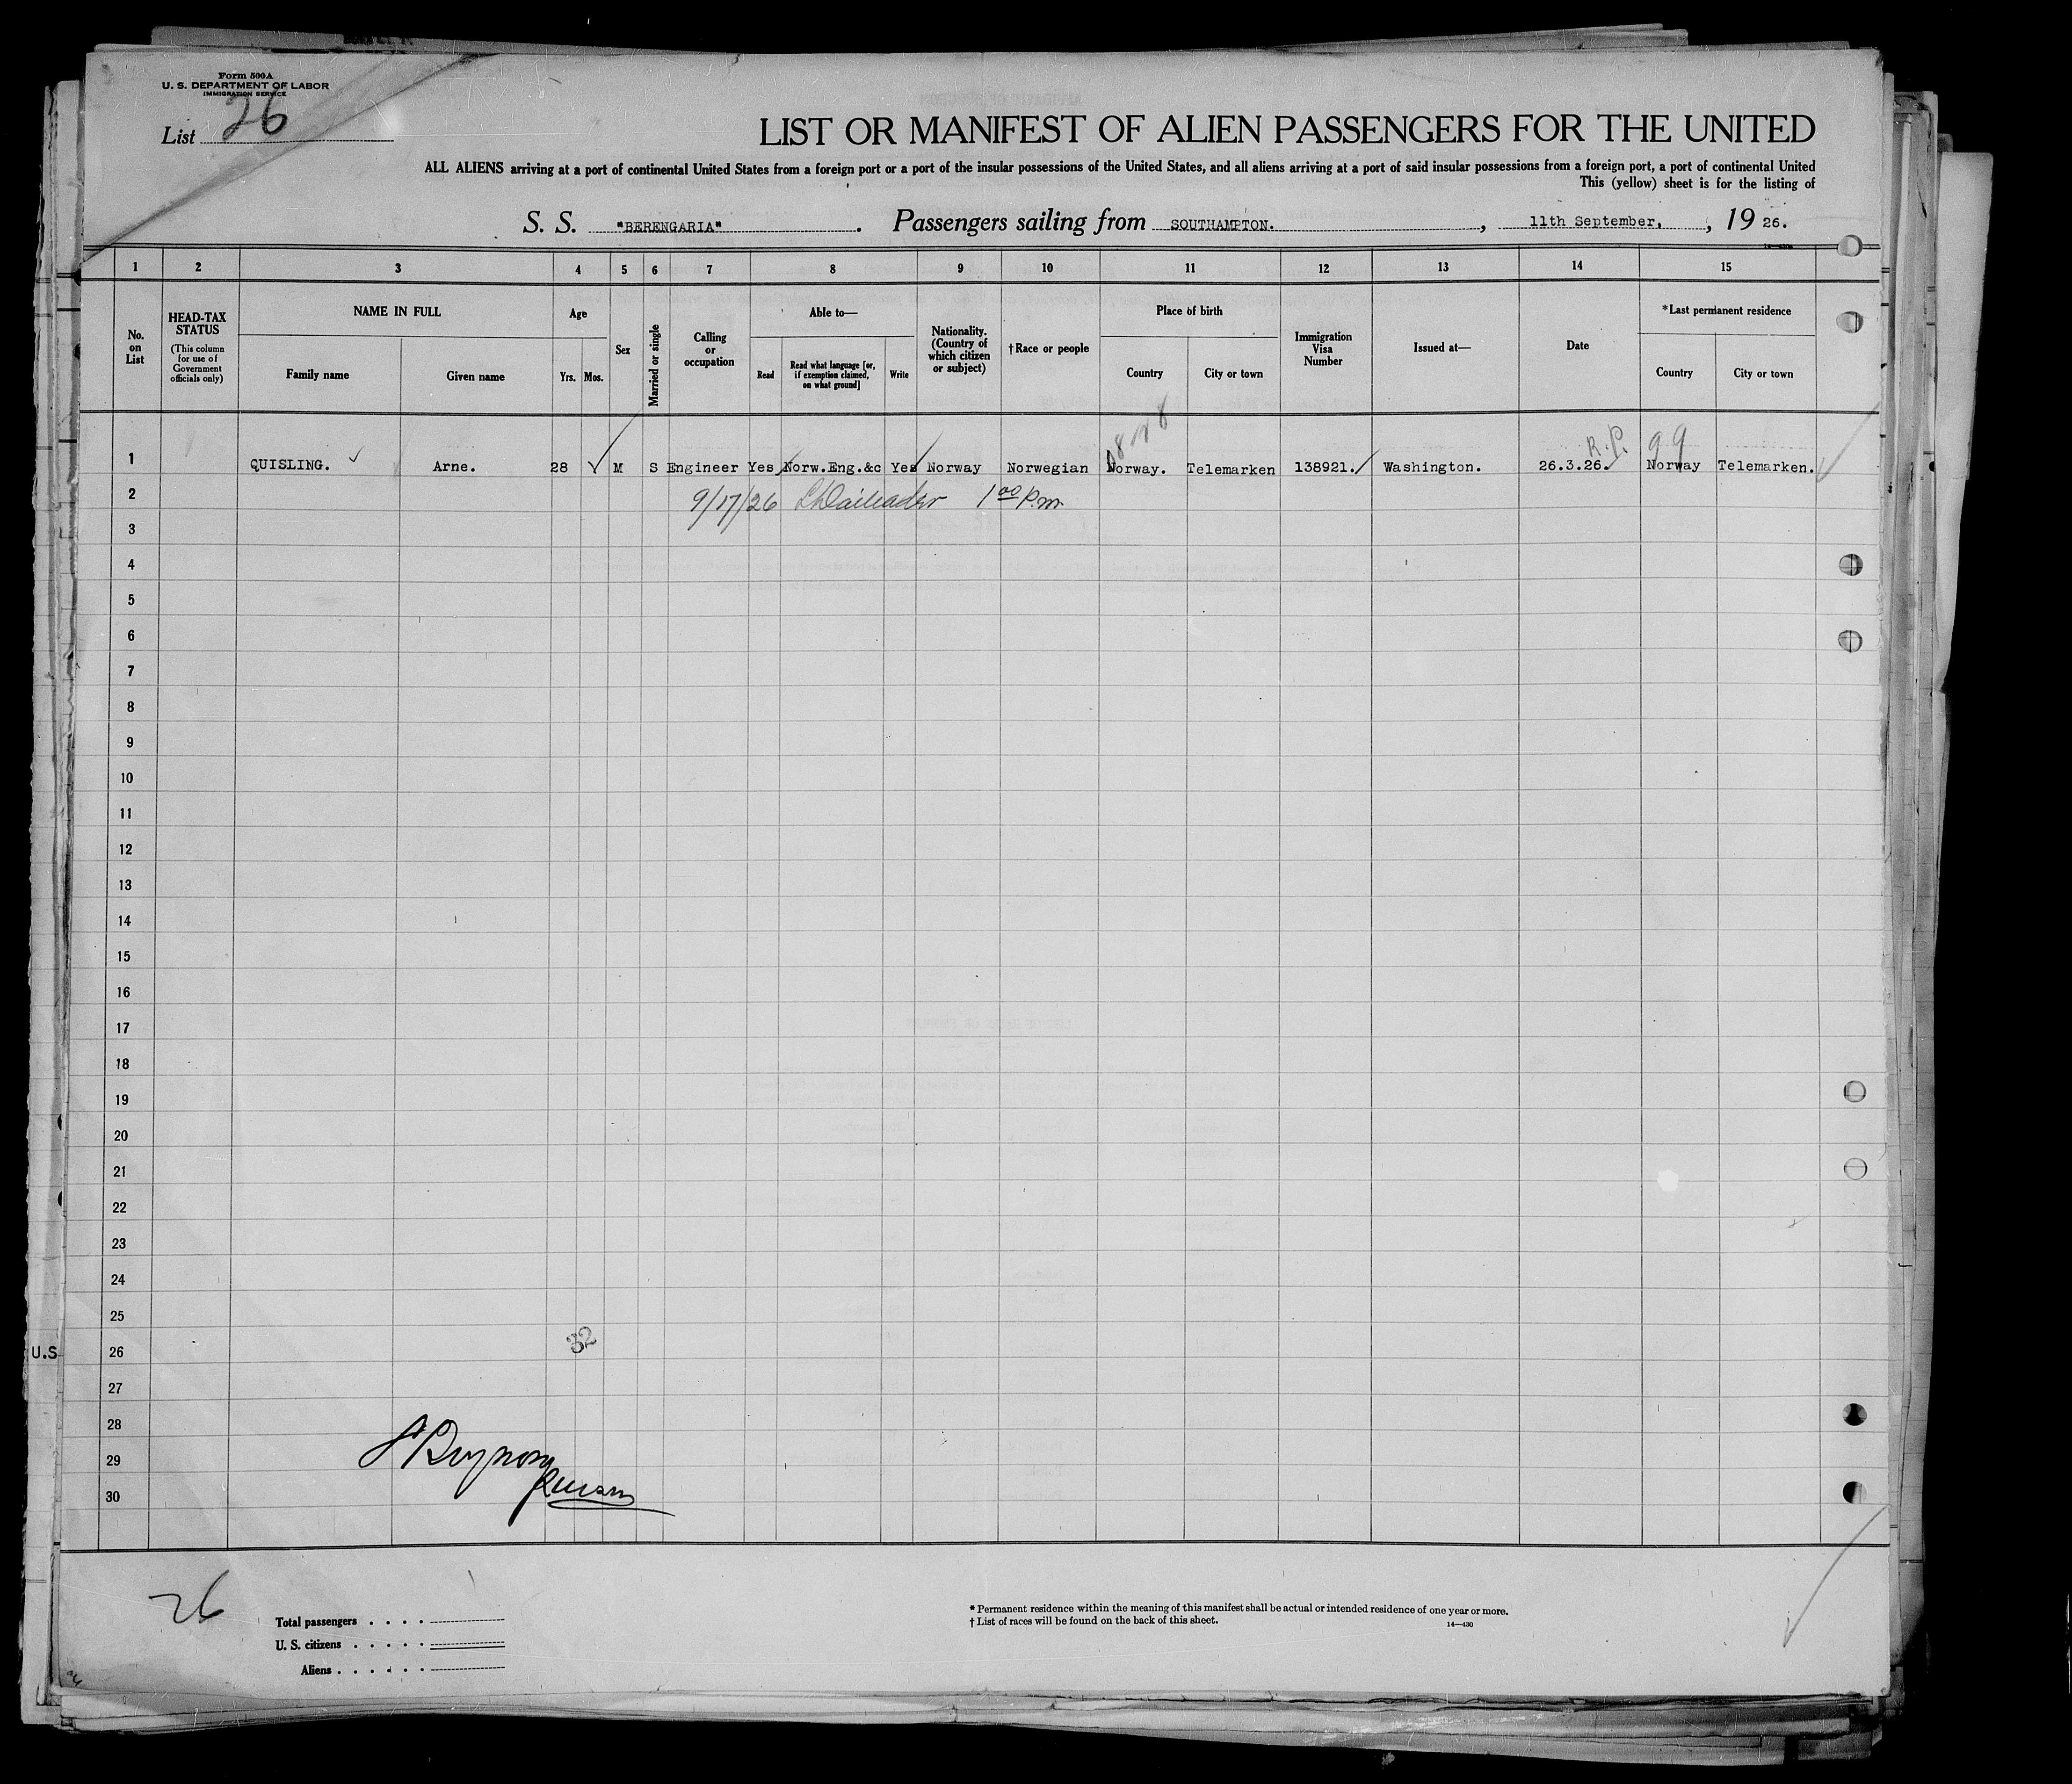 Form 500A
U. S. DEPARTMENT OF LABOR
IMMIGRATION SERVICE
List 26
LIST OR MANIFEST OF ALIEN PASSENGERS FOR THE UNITED
ALL ALIENS arriving at a port of continental United States from a foreign port or a port of the insular possessions of the United States, and all aliens arriving at a port of said insular possessions from a foreign port, a port of continental United
This (yellow) sheet is for the listing of
S. S. "BERENGARIA". Passengers sailing from SOUTHAMPTON. , 11th September. , 19 26.
1 2 3 4 5 6 7 8 9 10 11 12 13 14 15
No. on List
HEAD-TAX STATUS
(This column for use of Government officials only)
NAME IN FULL
Family name
Given name
Age
Yrs. Mos.
Sex
Married or single
Calling or occupation
Able to—
Read
Read what language [or, if exemption claimed, on what ground]
Write
Nationality. (Country of which citizen or subject)
†Race or people
Place of birth
Country
City or town
Immigration Visa Number
Issued at—
Date
*Last permanent residence
Country
City or town
R.P. 99
1 QUISLING. Arne. 28 M S Engineer Yes Norw.Eng.&c Yes Norway Norwegian Norway. Telemarken 138921. Washington. 26.3.26. Norway Telemarken.
2 9/17/26 1 00 P.m.
3
4
5
6
7
8
9
10
11
12
13
14
15
16
17
18
19
20
21
22
23
24
25
32
U.S 26
27
28
29
30
26
Total passengers . . . .
U. S. citizens . . . . .
Aliens . . . . . .
* Permanent residence within the meaning of this manifest shall be actual or intended residence of one year or more.
† List of races will be found on the back of this sheet.
14—430